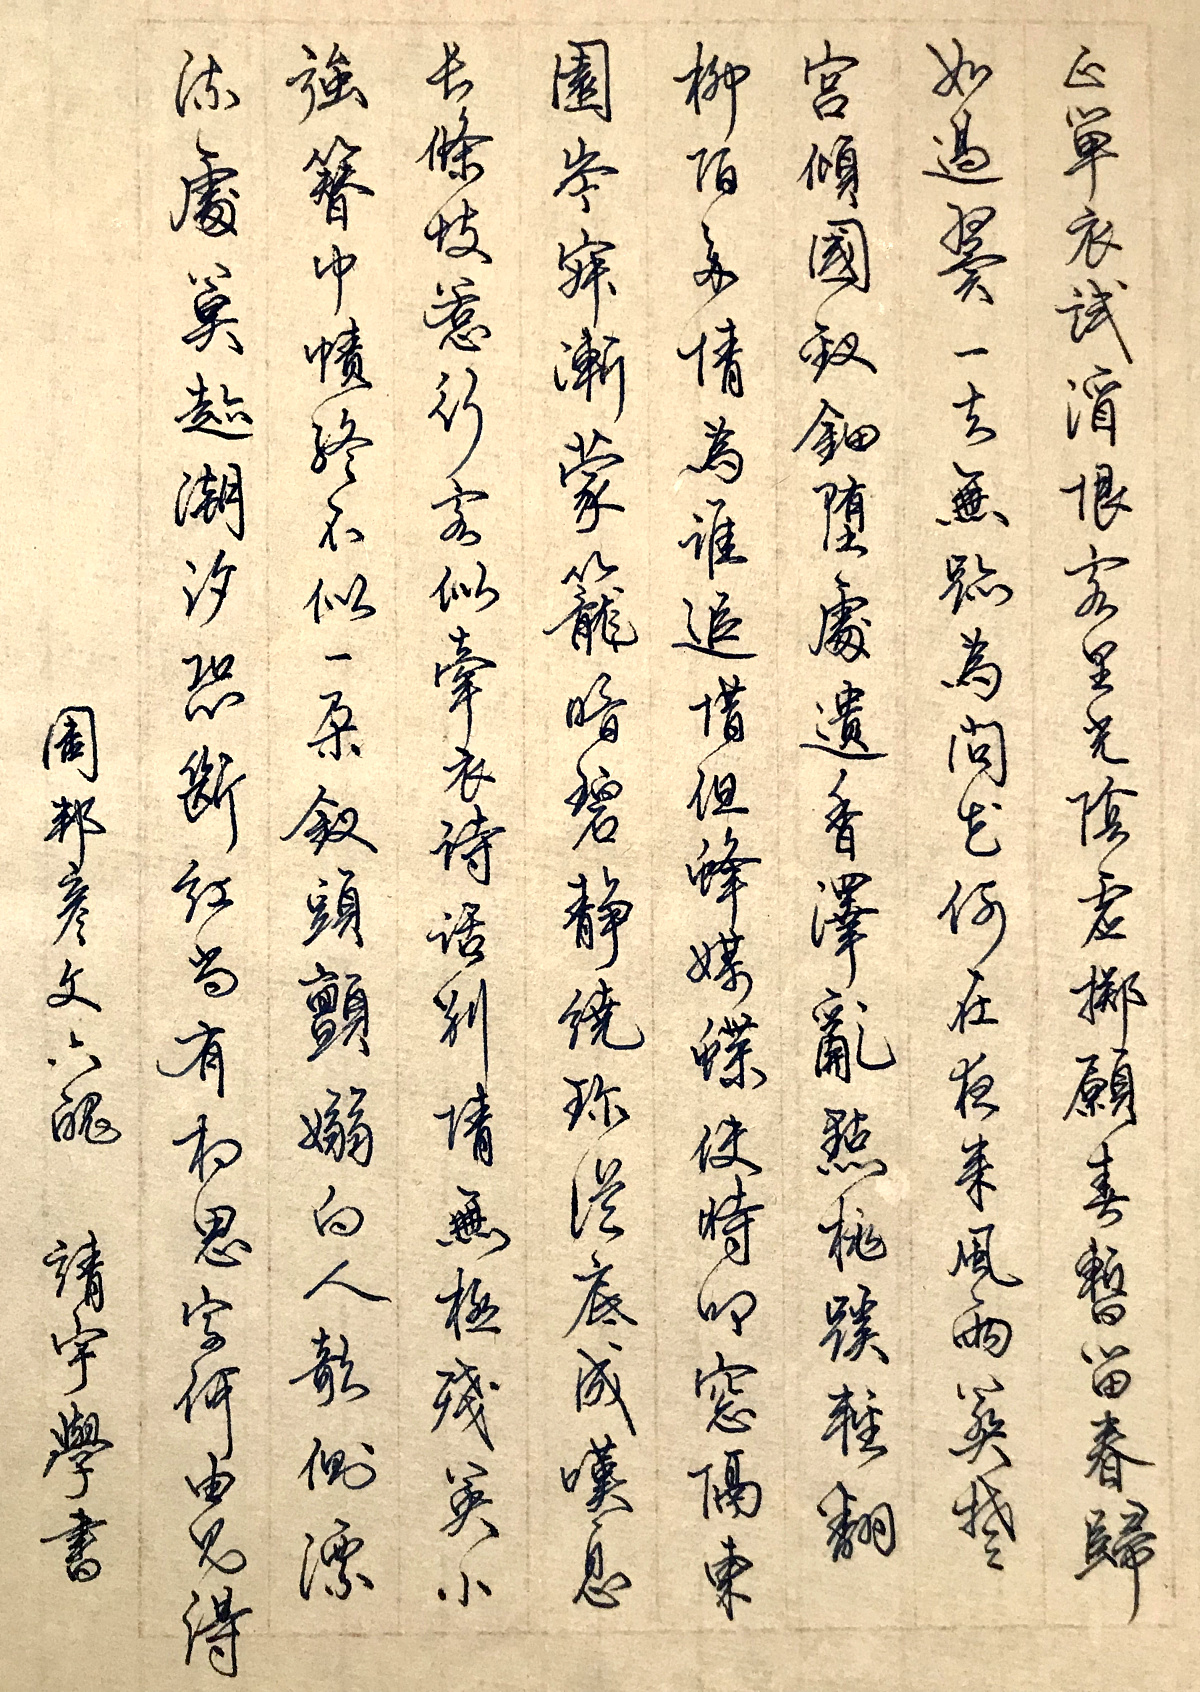 正單衣試酒恨客里光陰虛擲願春暫留春歸
如過翼一去無跡為問花何在夜來風雨葬楚
宮傾國釵鈿墮處遺香澤亂點桃蹊輕翻
柳陌多情為誰追惜但蜂媒蝶使時叩窗隔東
園岑寂漸蒙籠暗碧靜繞珍叢底成嘆息
長條故惹行客似牽衣待話別情無極殘英小
強簪巾幘終不似一朵釵頭顫嫋向人欹側漂
流處莫趁潮汐恐斷紅尚有相思字何由見得
周邦彥文六醜 靖宇學書